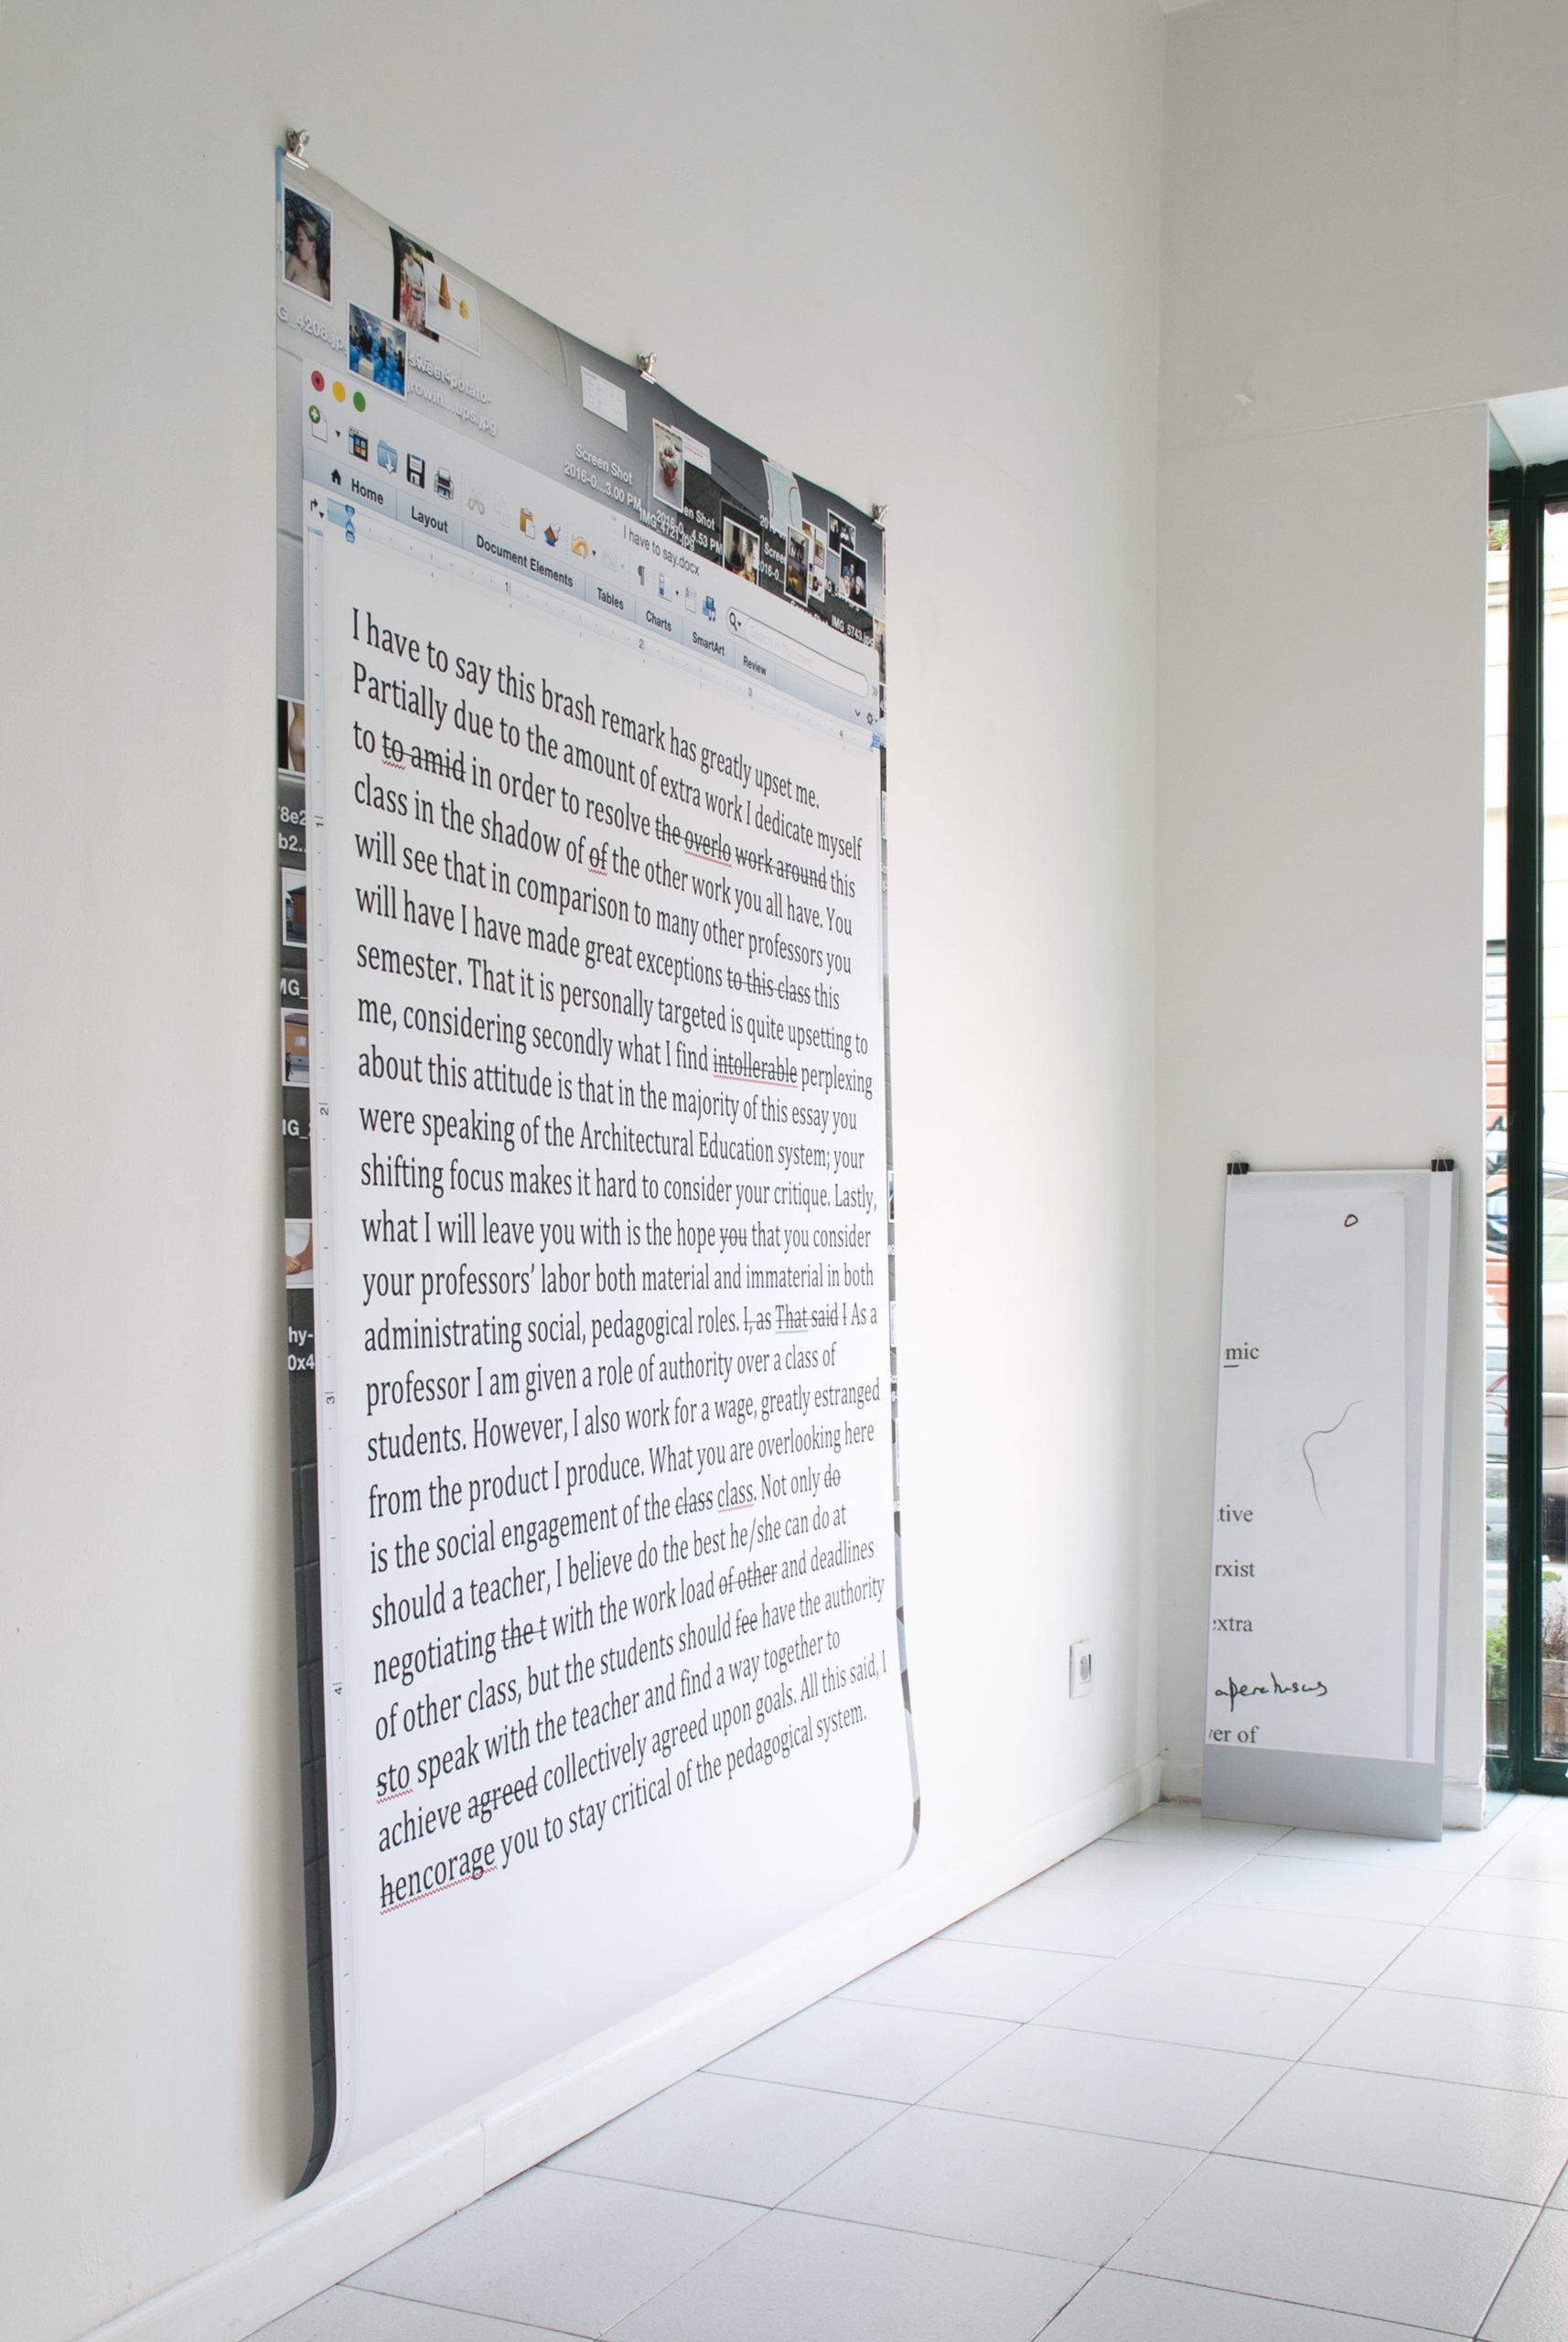 G_4208.jp
sweet-potato-
rowin...ups.jpg
Screen Shot
2016-0...3.00 PM
en Shot
4.53 PM
IMG_4721.jpg
IMG_5743.jpg
I have to say.docx
Home
Layout
Document Elements
Tables
Charts
SmartArt
Review
Search in Document
1
2
3
4
I have to say this brash remark has greatly upset me.
Partially due to the amount of extra work I dedicate myself
to to amid in order to resolve the overlo work around this
class in the shadow of of the other work you all have. You
will see that in comparison to many other professors you
will have I have made great exceptions to this class this
semester. That it is personally targeted is quite upsetting to
me, considering secondly what I find intollerable perplexing
about this attitude is that in the majority of this essay you
were speaking of the Architectural Education system; your
shifting focus makes it hard to consider your critique. Lastly,
what I will leave you with is the hope you that you consider
your professors’ labor both material and immaterial in both
administrating social, pedagogical roles. I, as That said I As a
professor I am given a role of authority over a class of
students. However, I also work for a wage, greatly estranged
from the product I produce. What you are overlooking here
is the social engagement of the class class. Not only do
should a teacher, I believe do the best he/she can do at
negotiating the t with the work load of other and deadlines
of other class, but the students should fee have the authority
sto speak with the teacher and find a way together to
achieve agreed collectively agreed upon goals. All this said, I
hencorage you to stay critical of the pedagogical system.
8e2
b2..
MG_
IG_
hy-
0x4
1
2
3
4
mic
tive
rxist
extra
ver of